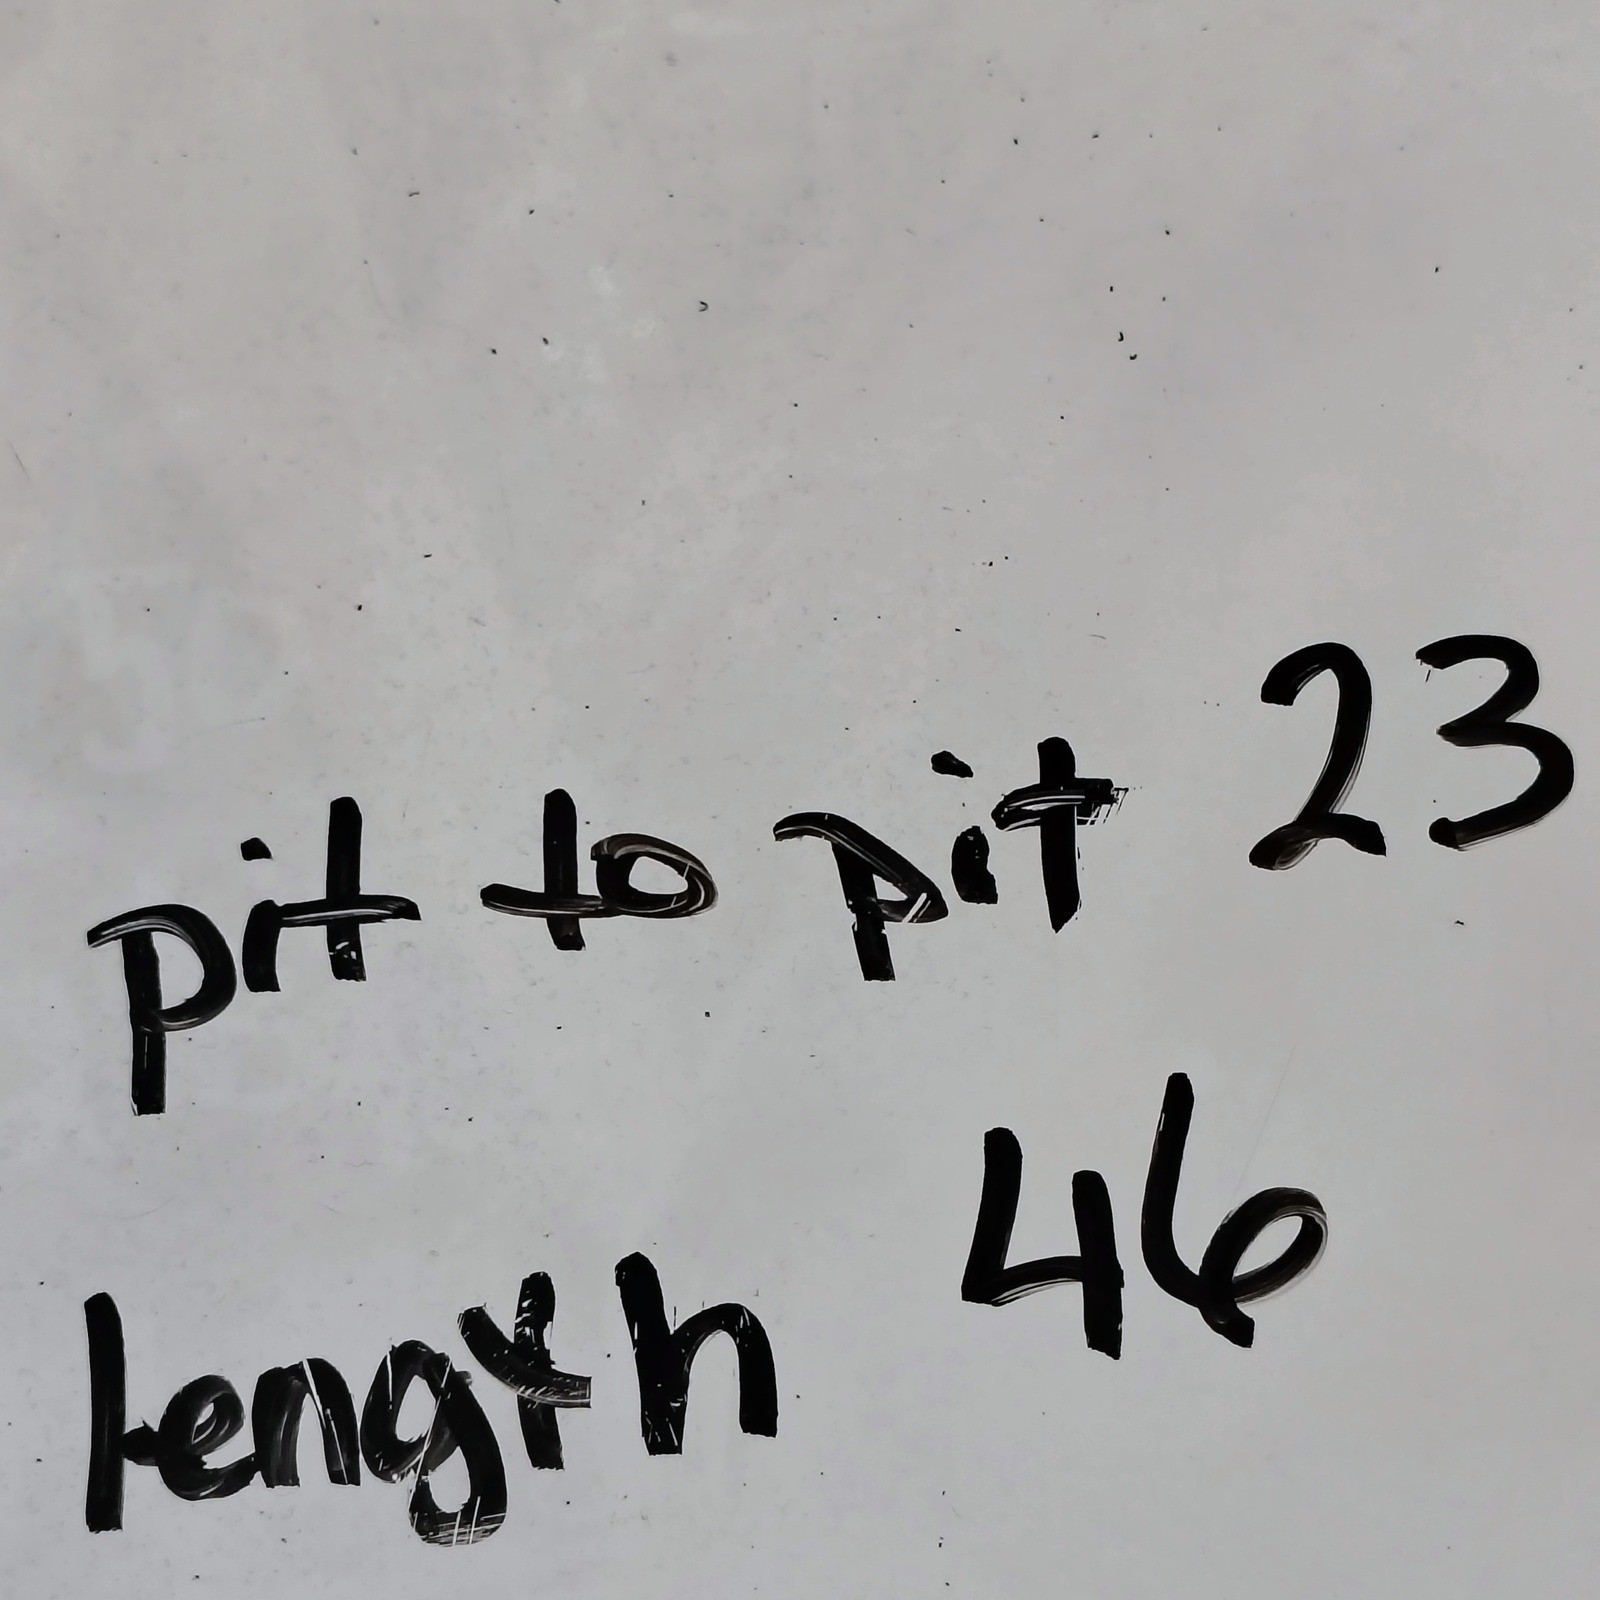 pit to pit 23
length 46